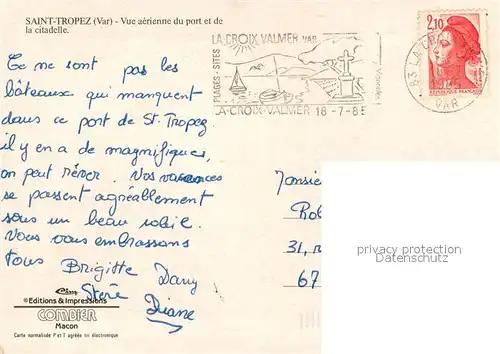 SAINT-TROPEZ (Var) - Vue aérienne du port et de
la citadelle.
LA CROIX VALMER VAR
PLAGES - SITES
LA-CROIX-VALMER 18-7-85
2,10
83 LA CR
VAR
Ce ne sont pas les
bâteaux qui manquent
dans ce port de St. Tropez
il y en a de magnifiques,
on peut rêver. Vos vacances
se passent agréablement
sous un beau soleil.
Nous vous embrassons
tous Brigitte Dany
Diane
Monsie
Rob
31, r
67
privacy protection watermark
Cim
© Editions & Impressions
COMBIER
Macon
Carte normalisée P et T agréée tri électronique